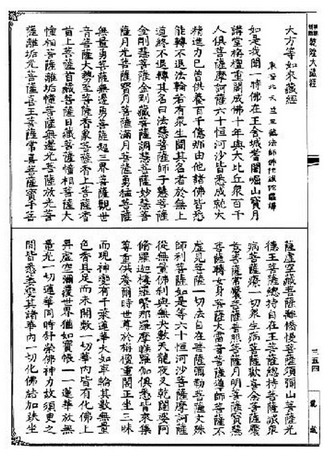 乾隆大藏經
大方等如來藏經
東晉北天竺三藏法師佛陀跋陀羅譯
如是我聞一時佛在王舍城耆闍崛山寶月
講堂栴檀重閣成佛十年與大比丘眾百千
人俱菩薩摩訶薩六十恒河沙皆悉成就大
精進力已曾供養百千億那由他諸佛皆悉
能轉不退法輪若有眾生聞其名者於無上
道終不退轉其名曰法慧菩薩師子慧菩薩
金剛慧菩薩金剛藏菩薩調慧菩薩妙慧菩
薩月光菩薩寶月菩薩滿月菩薩勇猛菩薩
無量勇菩薩無邊勇菩薩超三界菩薩觀世
音菩薩大勢至菩薩香象菩薩香上菩薩香
首上菩薩首藏菩薩日藏菩薩幢相菩薩大
幢相菩薩離垢幢菩薩無邊光菩薩放光菩
薩離垢光菩薩喜王菩薩常喜菩薩寶手菩
薩虛空藏菩薩離憍慢菩薩須彌山菩薩光
德王菩薩總持自在王菩薩總持菩薩滅眾
病菩薩療一切眾生病菩薩歡喜念菩薩饜
意菩薩常饜菩薩普照菩薩月明菩薩寶慧
菩薩轉女身菩薩大雷音菩薩導師菩薩不
虛見菩薩一切法自在菩薩彌勒菩薩文殊
師利菩薩如是等六十恒河沙菩薩摩訶薩
從無量佛剎與無央數天龍夜叉乾闥婆阿
脩羅迦樓羅緊那羅摩睺羅伽俱悉皆來集
尊重供養爾時世尊於栴檀重閣正坐三昧
而現神變有千葉蓮華大如車輪其數無量
色香具足而未開敷一切華內皆有化佛上
昇虛空彌覆世界猶如寶帳一一蓮華放無
量光一切蓮華同時舒榮佛神力故須臾之
間皆悉萎變其諸華內一切化佛結加趺坐
三五四